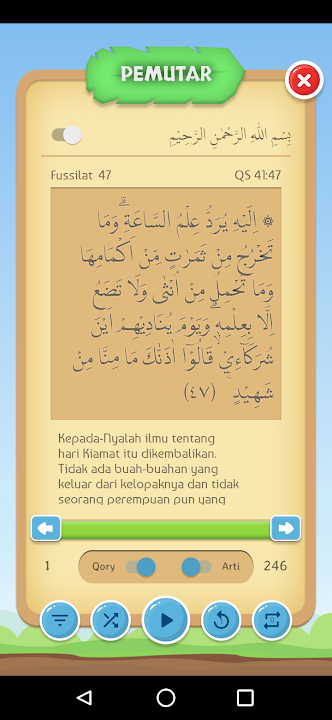 PEMUTAR
بِسْمِ اللّٰهِ الرَّحْمٰنِ الرَّحِيْمِ
Fussilat 47 QS 41:47
۞ اِلَيْهِ يُرَدُّ عِلْمُ السَّاعَةِ ۗوَمَا
تَخْرُجُ مِنْ ثَمَرٰتٍ مِّنْ اَكْمَامِهَا
وَمَا تَحْمِلُ مِنْ اُنْثٰى وَلَا تَضَعُ
اِلَّا بِعِلْمِهٖ ۗوَيَوْمَ يُنَادِيْهِمْ اَيْنَ
شُرَكَاۤءِيْۙ قَالُوْٓا اٰذَنّٰكَ مَا مِنَّا مِنْ
شَهِيْدٍ ۚ (٤٧)
Kepada-Nyalah ilmu tentang
hari Kiamat itu dikembalikan.
Tidak ada buah-buahan yang
keluar dari kelopaknya dan tidak
seorang perempuan pun yang
1 Qory Arti 246